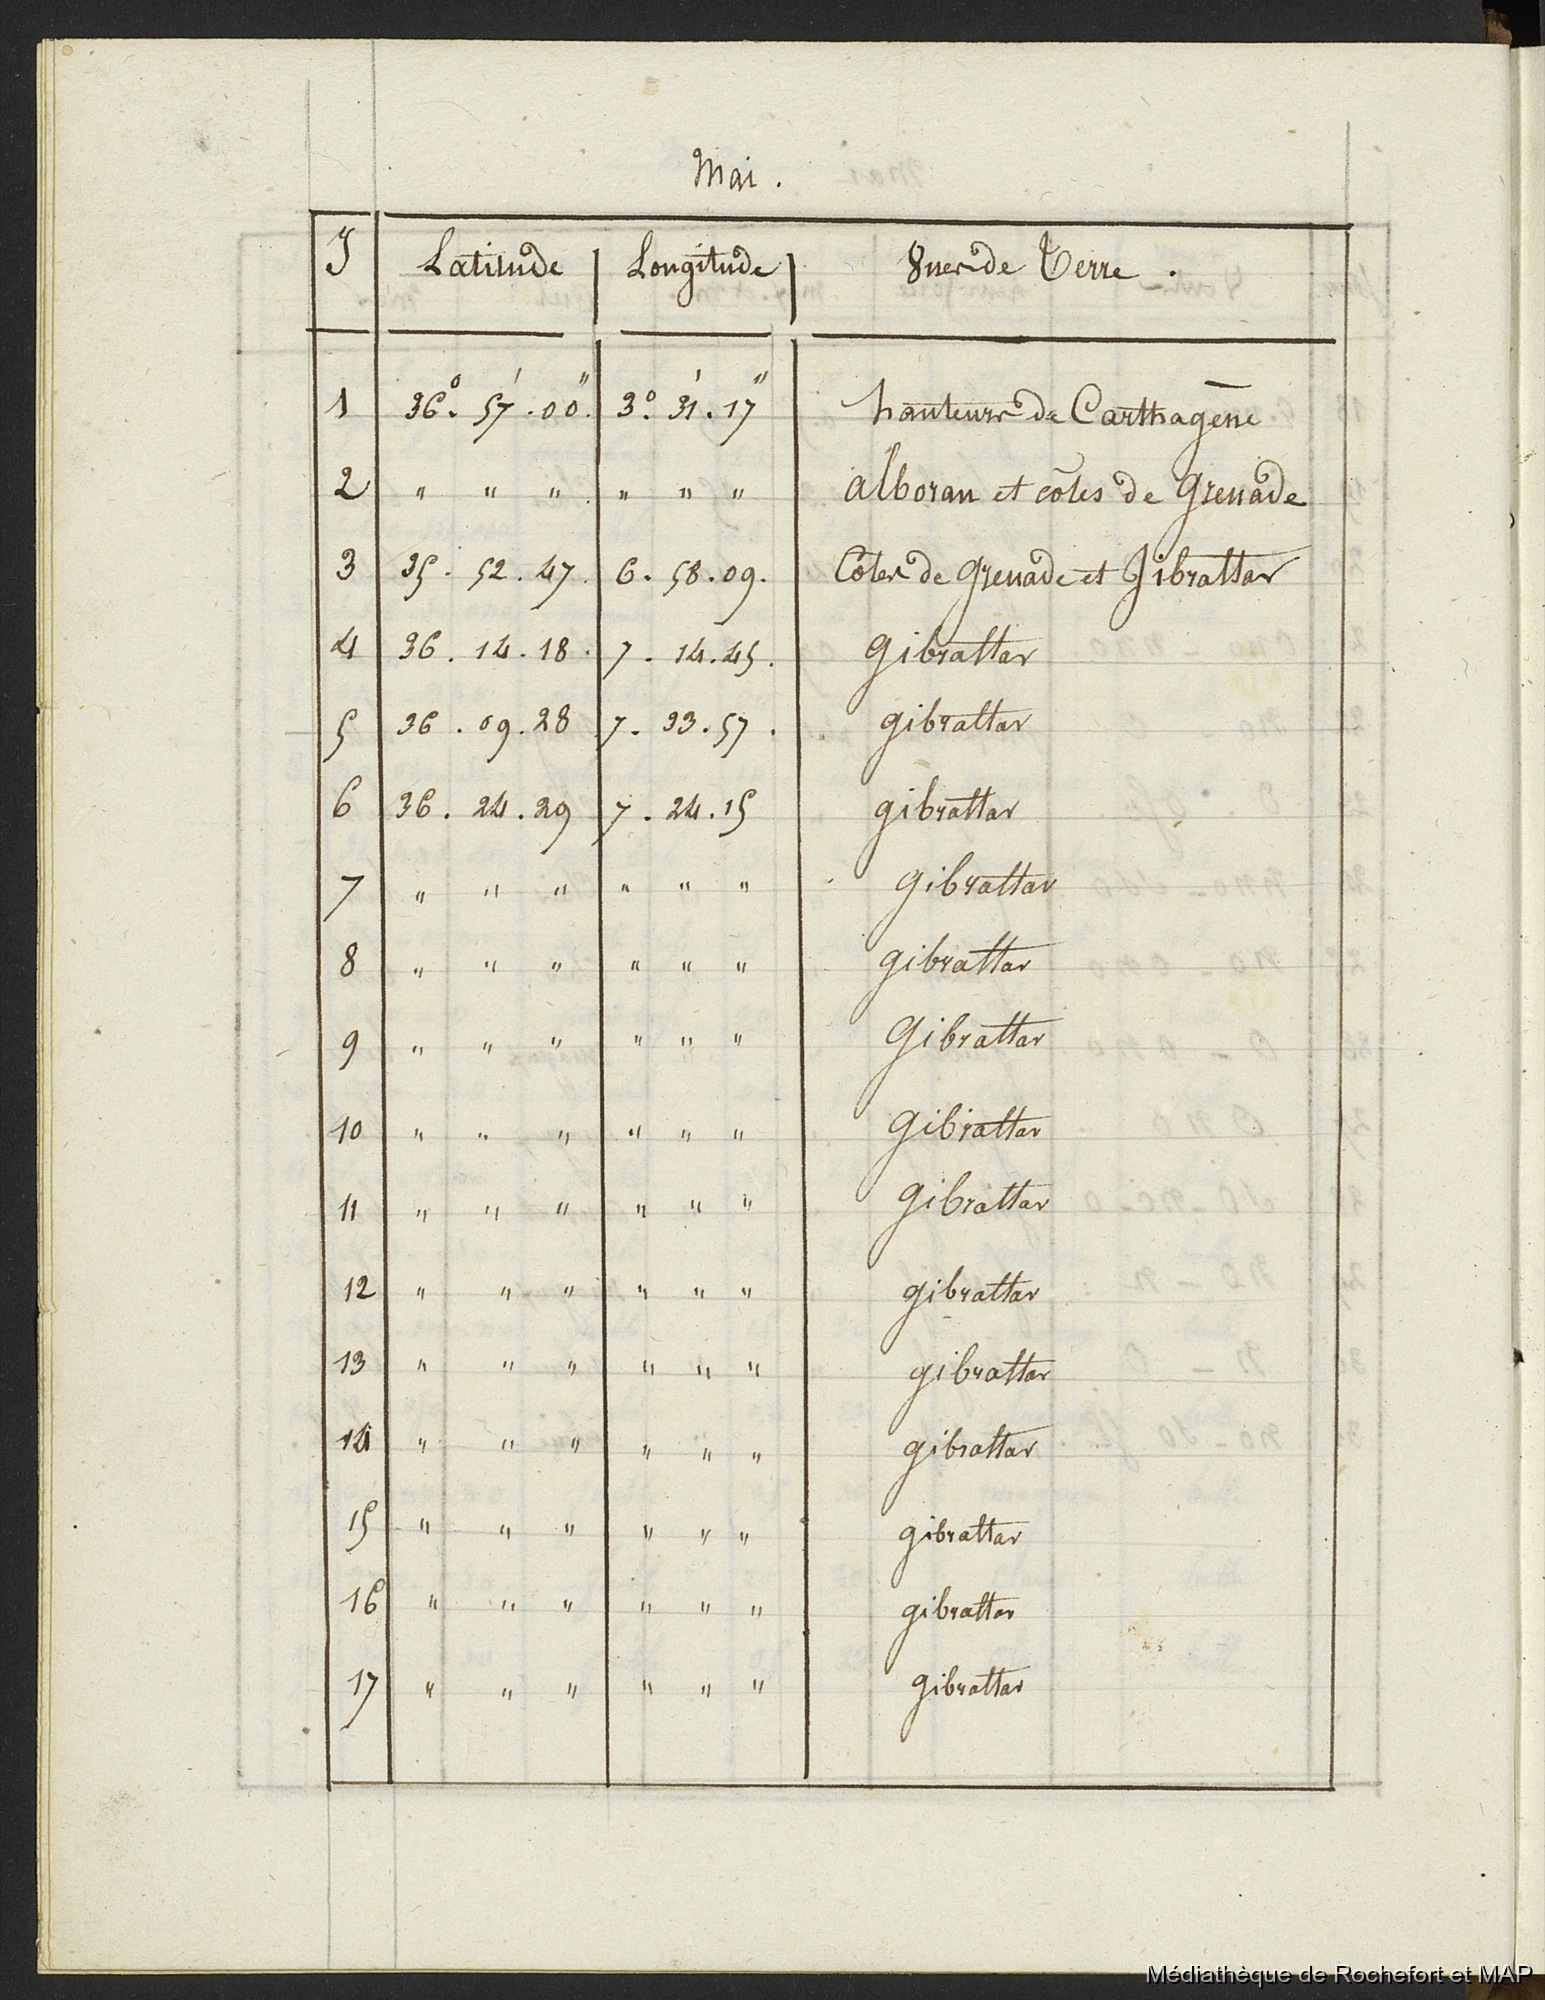 Mai.
J Latitude Longitude Vues de Terre.
1 36°. 57'. 00". 3°. 31'. 17" hauteurs de Carthagène
2 " " " " " " alboran et côtes de grenade
3 35. 52. 47. 6. 58. 09. Côtes de grenade et Gibrattar
4 36. 14. 18. 7. 14. 45. Gibrattar
5 36. 09. 28 7. 33. 57. gibrattar
6 36. 24. 29 7. 24. 15 gibrattar
7 " " " " " " gibrattar
8 " " " " " " gibrattar
9 " " " " " " Gibrattar
10 " " " " " " Gibrattar
11 " " " " " " Gibrattar
12 " " " " " " gibrattar
13 " " " " " " gibrattar
14 " " " " " " gibrattar
15 " " " " " " gibrattar
16 " " " " " " gibrattar
17 " " " " " " gibrattar
Médiathèque de Rochefort et MAP